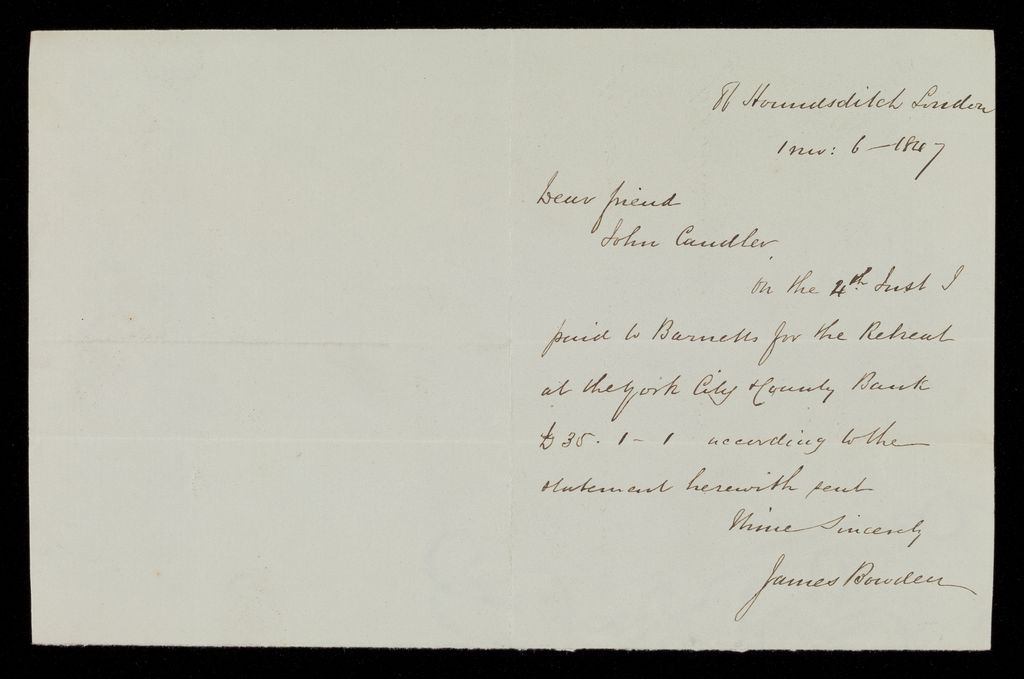 Houndsditch London
1 mo: 6 - 1847
Dear friend
John Candler
On the 4th Inst I
paid to Barnetts for the Retreat
at the York City & County Bank
£35. 1 - 1 according to the
statement herewith sent
Thine Sincerely
James Bowden